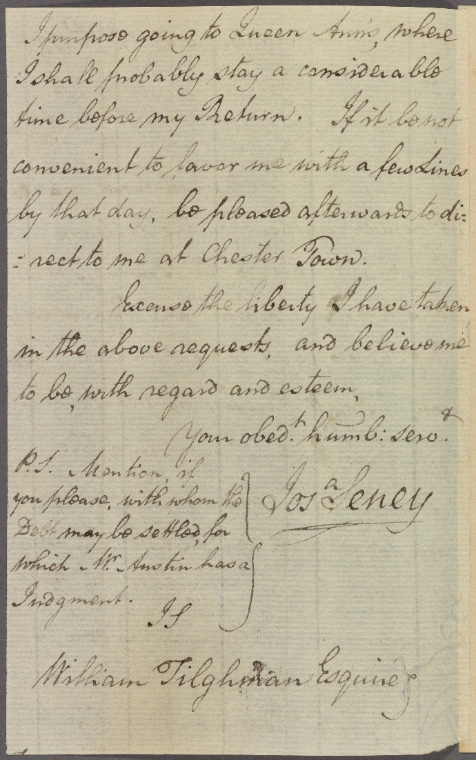 I purpose going to Queen Ann's, where
I shall probably stay a considerable
time before my Return. If it be not
convenient to favor me with a few Lines
by that day, be pleased afterwards to di=
=rect to me at Chester Town.
Excuse the liberty I have taken
in the above requests, and believe me
to be, with regard and esteem,
Your obed.t humb: serv.t
P.S. Mention, if
you please, with whom the
Debt may be settled, for
which Mr. Austin has a
Judgment.
Josa Seney
JS
William Tilghman Esquire